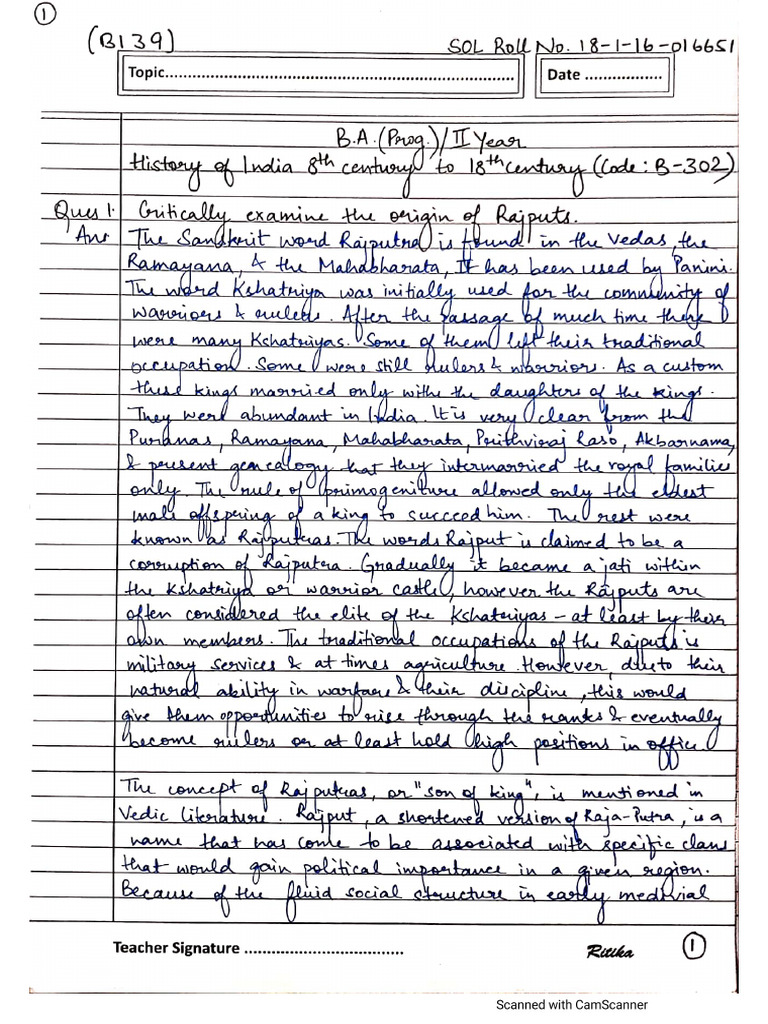 1
(B139)
SOL Roll No. 18-1-16-016651
Topic.......................................................................
Date .................
B.A. (Prog.)/II Year
History of India 8th century to 18th century (Code: B-302)
Ques 1. Critically examine the origin of Rajputs.
Ans The Sanskrit word Rajputra is found in the Vedas, the
Ramayana, & the Mahabharata, It has been used by Panini.
The word Kshatriya was initially used for the community of
warriors & rulers. After the passage of much time there
were many Kshatriyas. Some of them left their traditional
occupation. Some were still rulers & warriors. As a custom
these kings married only withe the daughters of the kings.
They were abundant in India. It is very clear from the
Puranas, Ramayana, Mahabharata, Prithviraj Raso, Akbarnama,
& present genealogy that they intermarried the royal families
only. The rule of primogeniture allowed only the eldest
male offspring of a king to succeed him. The rest were
known as Rajputras. The words Rajput is claimed to be a
corruption of Rajputra. Gradually it became a jati within
the Kshatriya or warrior caste, however the Rajputs are
often considered the elite of the Kshatriyas – at least by their
own members. The traditional occupations of the Rajputs is
military services & at times agriculture. However, due to their
natural ability in warfare & their discipline, this would
give them opportunities to rise through the ranks & eventually
become rulers or at least hold high positions in office
The concept of Rajputras, or "son of king", is mentioned in
Vedic literature. Rajput, a shortened version of Raja-Putra, is a
name that has come to be associated with specific clans
that would gain political importance in a given region.
Because of the fluid social structure in early medivial
Teacher Signature ..................................
Ritika
1
Scanned with CamScanner